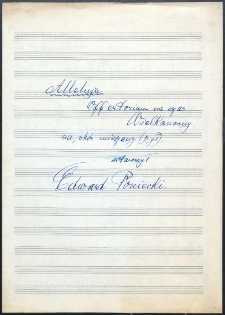 Alleluja
Offertorium na czas
Wielkanocny
na chór mieszany (5 gł)
utworzył
Edward Poniecki